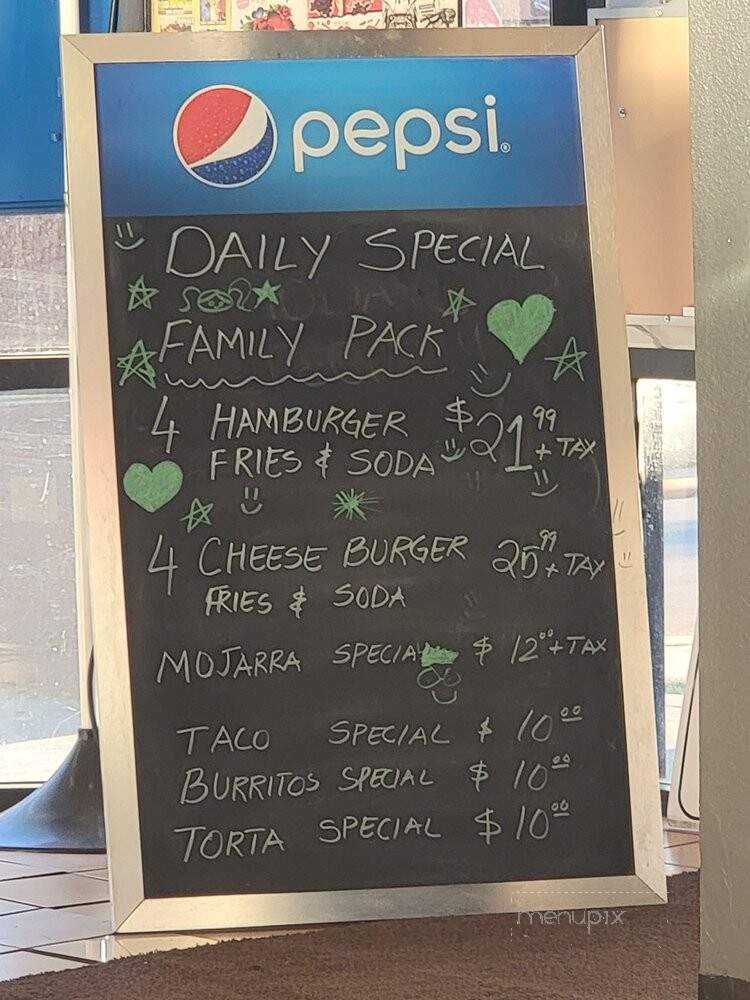 pepsi®
DAILY SPECIAL
FAMILY PACK
4 HAMBURGER $21.99
FRIES & SODA + TAX
4 CHEESE BURGER 25.99
FRIES & SODA + TAX
MOJARRA SPECIAL $ 12.00 + TAX
TACO SPECIAL $ 10.00
BURRITOS SPECIAL $ 10.00
TORTA SPECIAL $ 10.00
menupix